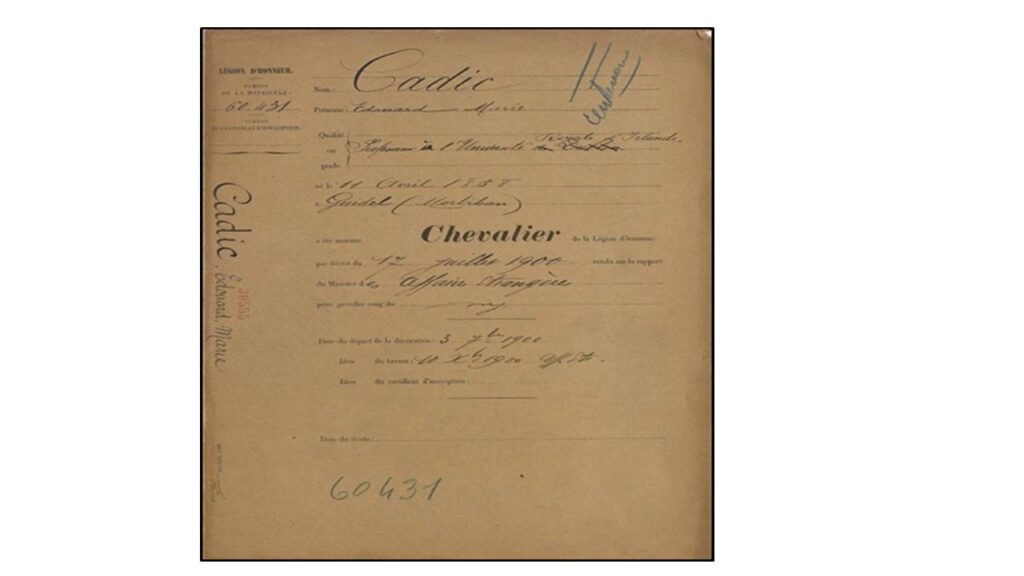 LÉGION D'HONNEUR.
NUMÉRO
DE LA MATRICULE:
60.431
NUMÉRO
Nom: Cadic
centenaire
Prénoms: Edouard Marie
Qualité
ou
grade
Royale d'Irlande.
Professeur à l'Université de Dublin
né le 11 Avril 1858
à Guidel (Morbihan)
a été nommé Chevalier de la Légion d'honneur
par décret du 17 juillet 1900 rendu sur le rapport
du Ministre des Affaires Etrangères
pour prendre rang du
Date du départ de la décoration: 3 7bre 1900
Idem du brevet: 10 Xbre 1900 aff. Etr.
Idem du certificat d'inscription:
Date du décès:
60431
Cadic, Edouard, Marie